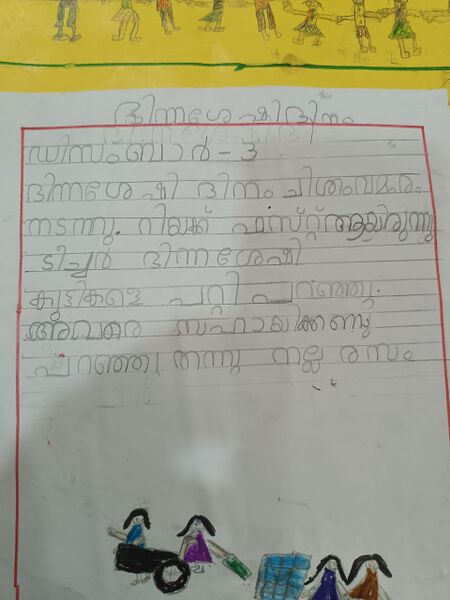 ഭിന്നശേഷിദിനം
ഡിസംബർ - 3
ഭിന്നശേഷി ദിനം ചിത്രംവരം
നടന്നു. നിയക്ക് ഫസ്റ്റ് ആയിരുന്നു
ടീച്ചർ ഭിന്നശേഷി
കുട്ടികളെ പറ്റി പറഞ്ഞു.
അവരെ സഹായിക്കണം
പറഞ്ഞു തന്നു നല്ല രസം